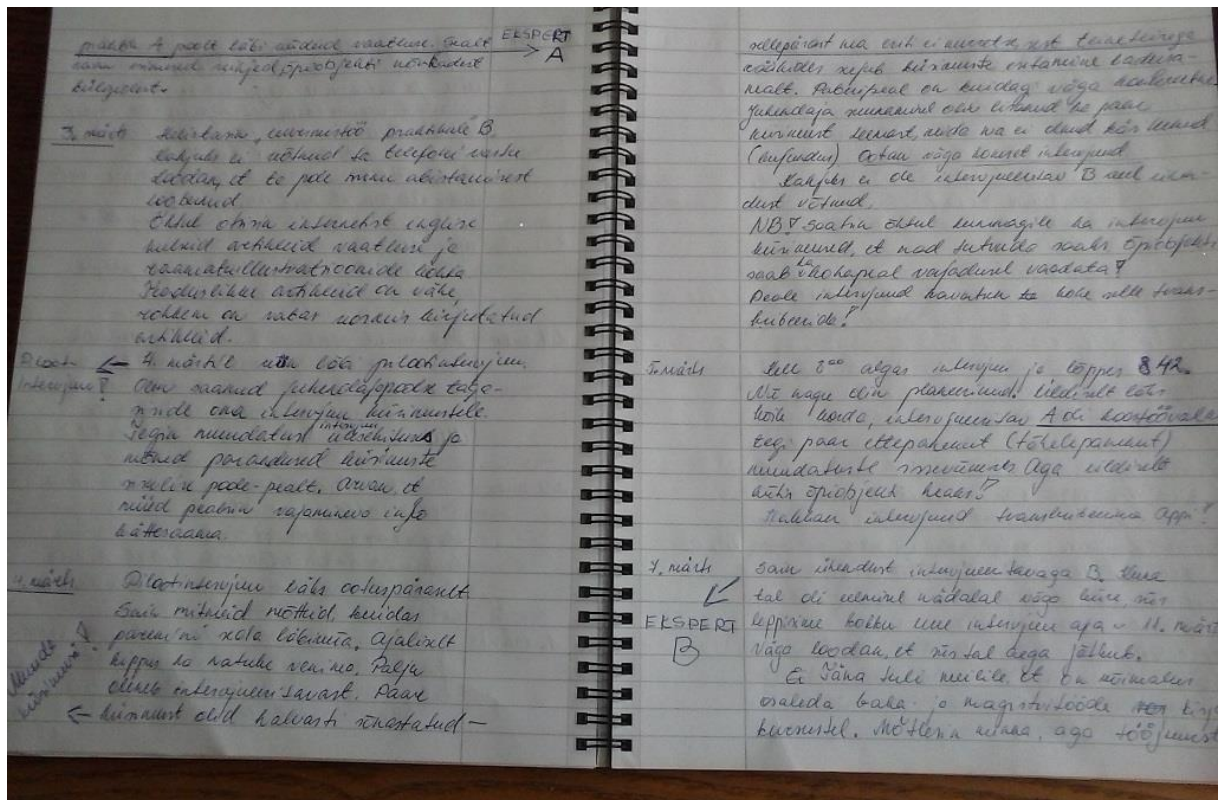 praktik A poolt läbi viidud vaatluse. Sealt
EKSPERT
A
nõrkadest
külgedest.
3. märts
Helistasin praktikule B.
Kahjuks ei võtnud ta telefoni vastu
Loodan, et ta pole minu abistamisest
loobunud.
Õhtul otsisin internetist inglise
keelseid artikleid vaatluse ja
raamatuillustratsioonide kohta
Teaduslikke artikleid on vähe,
rohkem on vabas vormis kirjutatud
artikleid.
Pilootintervjuu!
← 4. märtsil viin läbi pilootintervjuu.
Olen saanud juhendaja poolt taga-
siside oma intervjuu küsimustele.
Tegin muudatusi intervjuu ülesehituses ja
mõned parandused küsimuste
sisulise poole pealt. Arvan, et
nüüd peaksin vajamineva info
kätte saama.
4. märts
Pilootintervjuu läks ootuspäraselt
Sain mitmeid mõtteid, kuidas
paremini seda läbi viia. Ajaliselt
kippus ka natuke venima. Palju
oleneb intervjueeritavast. Paar
Muuda küsimusi!
← küsimust olid halvasti sõnastatud —
sellepärast ma eriti ei muretse, sest teineteisega
rääkides sujub küsimuste esitamine ladusa-
malt. Paberi peal on kuidagi väga konkreetne
Juhendaja
küsimust
Ootan väga homset intervjuud
Kahjuks ei ole intervjueeritav B veel ühen-
dust võtnud.
NB! Saatsin õhtul ka intervjuu
küsimused, et nad tutvuda saaks. Õpiobjekti
saab ka kohapeal vajadusel vaadata!
Peale intervjuud kavatsen kohe selle trans-
kribeerida!
5. märts
Kell 8⁰⁰ algas intervjuu ja lõppes 8 42.
Nii nagu olin planeerinud. Üldiselt läks
kõik hästi, intervjueeritav A oli koostöövalmis
tegi paar ettepanekut (tähelepanekut)
muudatuste sisseviimiseks. Aga üldiselt
õpiobjekti heaks!
Hakkan intervjuud transkribeerima. Appi!
7. märts
EKSPERT
B
Sain ühendust intervjueeritavaga B. Kuna
tal oli eelmine nädalal väga kiire, siis
leppisime kokku uue intervjuu aja - 11. märts
Väga loodan, et siis tal aega jätkub.
Täna tuli meilile, et on võimalus
osaleda baka- ja magistritööde
kursustel. Mõtlesin minna, aga